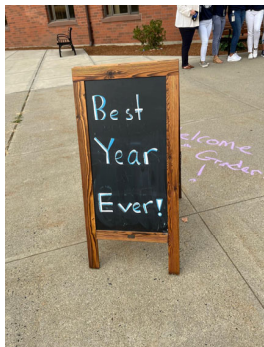 Best
Year
Ever!
Welcome
Gander
!